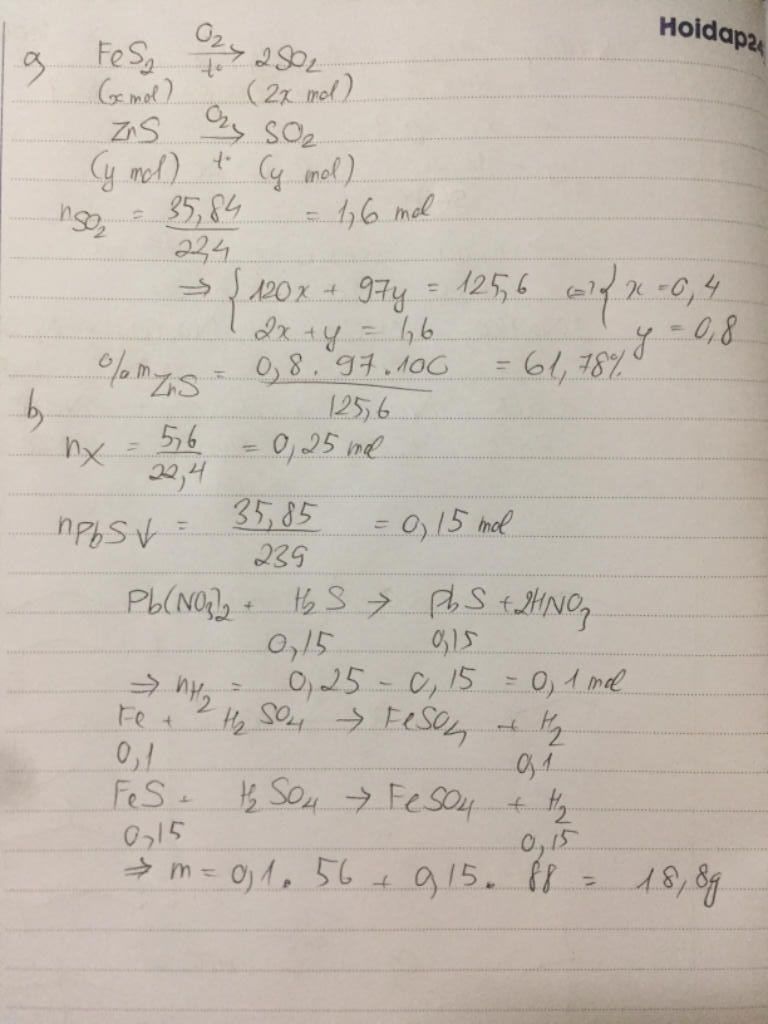 Hoidap24
a) FeS2 O2 →t° 2SO2
(x mol) (2x mol)
ZnS O2 →t° SO2
(y mol) (y mol)
nSO2 = 35,84/22,4 = 1,6 mol
⇒ { 120x + 97y = 125,6 ⇔ { x = 0,4
2x + y = 1,6 y = 0,8
%mZnS = 0,8 . 97 . 100 / 125,6 = 61,78%
b)
nX = 5,6/22,4 = 0,25 mol
nPbS↓ = 35,85/239 = 0,15 mol
Pb(NO3)2 + H2S → PbS + 2HNO3
0,15 0,15
⇒ nH2 = 0,25 - 0,15 = 0,1 mol
Fe + H2SO4 → FeSO4 + H2
0,1 0,1
FeS + H2SO4 → FeSO4 + H2
0,15 0,15
⇒ m = 0,1 . 56 + 0,15 . 88 = 18,8g